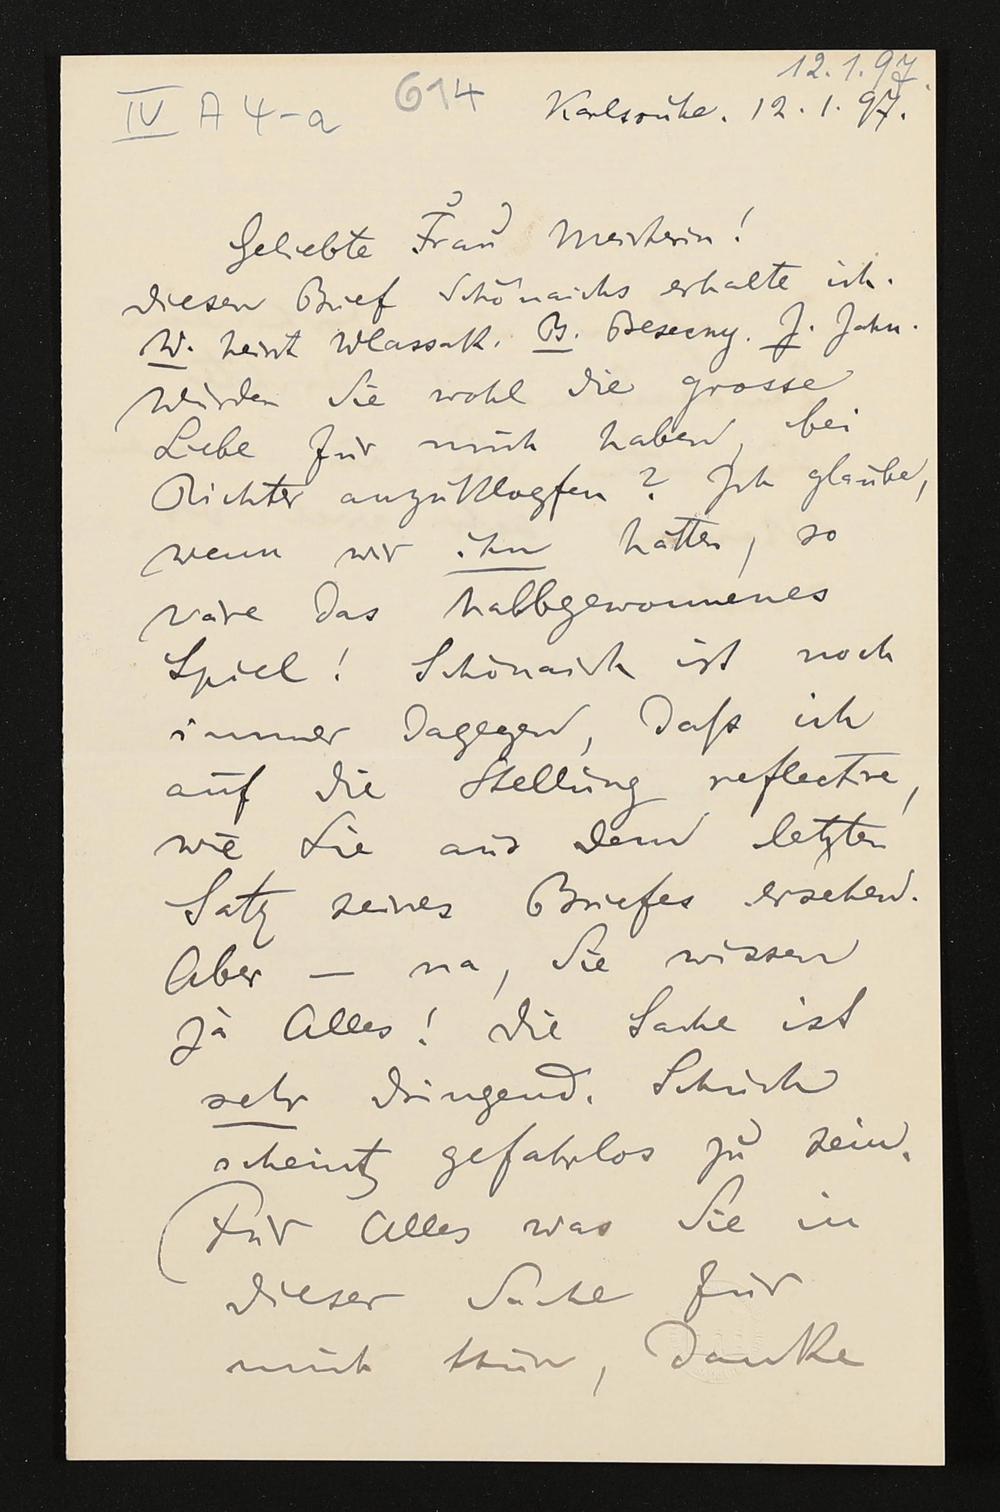 12.1.97.
IV A 4-a 614
Karlsruhe. 12.1.97.
Geliebte Frau Meisterin!
Diesen Brief Schönaichs erhalte ich.
W. heisst Wlassak. B. Besecny. J. Jahn.
Würden Sie wohl die grosse
Liebe für mich haben, bei
Richter anzuklopfen? Ich glaube,
wenn wir ihn hätten, so
wäre das halbgewonnenes
Spiel! Schönaich ist noch
immer dagegen, dass ich
auf die Stellung reflectire,
wie Sie aus dem letzten
Satz seines Briefes ersehen.
Aber — na, Sie wissen
ja Alles! Die Sache ist
sehr dringend. Schuch
scheint gefahrlos zu sein.
Für Alles was Sie in
dieser Sache für
mich thun, danke